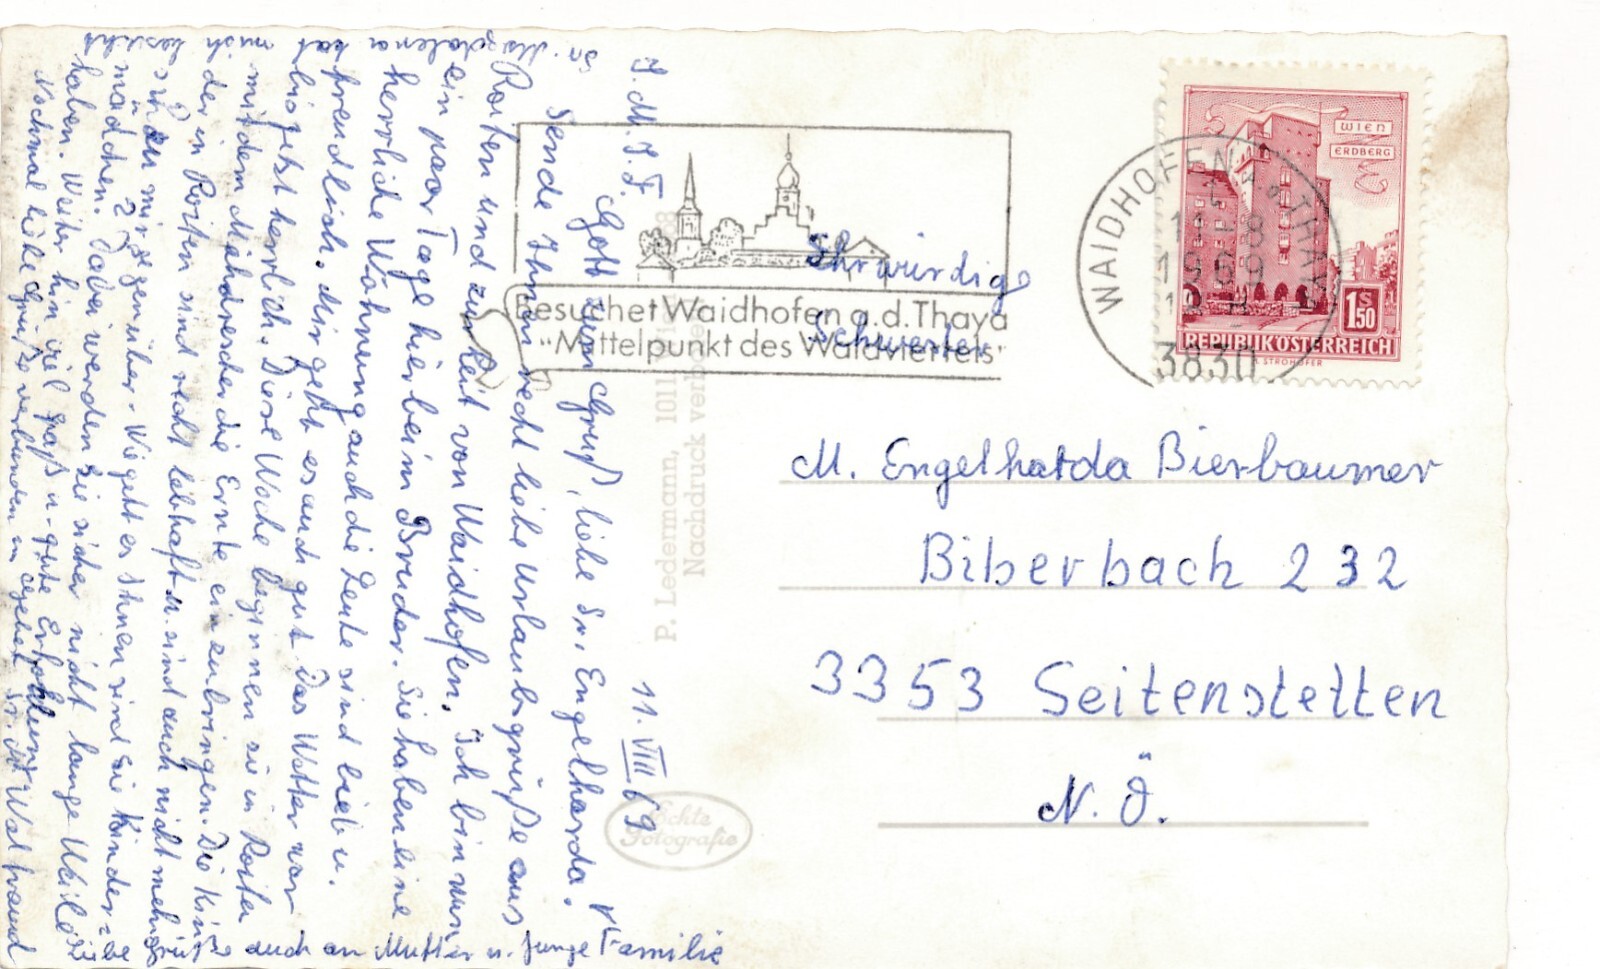 J. M. J. F.
11. VIII 69
Gott zum Gruß, liebe Sr. Engelharda!
Sende Ihnen recht liebe Urlaubsgrüße aus
Rorten und zur Zeit von Waidhofen. Ich bin nun
ein paar Tage hier beim Bruder. Sie haben eine
herrliche Wohnung auch die Leute sind lieb u.
freundlich. Mir geht es auch gut. Das Wetter war
bis jetzt herrlich. Diese Woche beginnen sie in Rorten
mit dem Mähdrescher die Ernte einzubringen. Die Kin-
der in Rorten sind recht lebhaft u. sind auch nicht mehr
zu mir gegenüber. Wie geht es Ihnen sind sie Kinder
mädchen? Dabei werden Sie sicher nicht lange Weile
haben. Weiter hin viel Spaß u. gute Erholung
Nochmal liebe Grüße verbunden im Gebet Sr. M. Waltraud
Liebe Grüße auch an Mutter u. junge Familie
Sr. Magdalena hat mich besucht
Besuchet Waidhofen a.d. Thaya
"Mittelpunkt des Waldviertels"
P. Ledermann, 1011 Wien
Nachdruck verboten
Echte
Fotografie
WAIDHOFEN a.d. THAYA
11.-8
1969
3830
WIEN
ERDBERG
1S50
REPUBLIK ÖSTERREICH
STROHOFER
Ehrwürdige
Schwester
M. Engelharda Bierbaumer
Biberbach 232
3353 Seitenstetten
N. Ö.